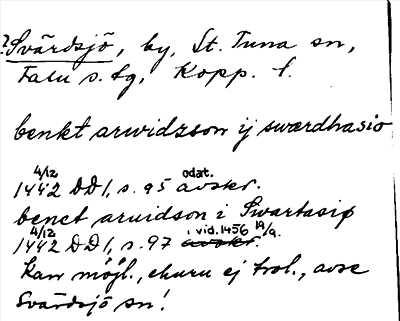 ? Svärdsjö, by, St. Tuna sn,
Falu s. tg, Kopp. l.
benkt arwidzson ij swærdhasio
1442 4/12 DD 1, s. 95 odat. avskr.
benct aruidson i Swartasiø
1442 4/12 DD 1, s. 97 avskr. i vid. 1456 19/9.
Kan möjl., ehuru ej trol., avse
Svärdsjö sn!